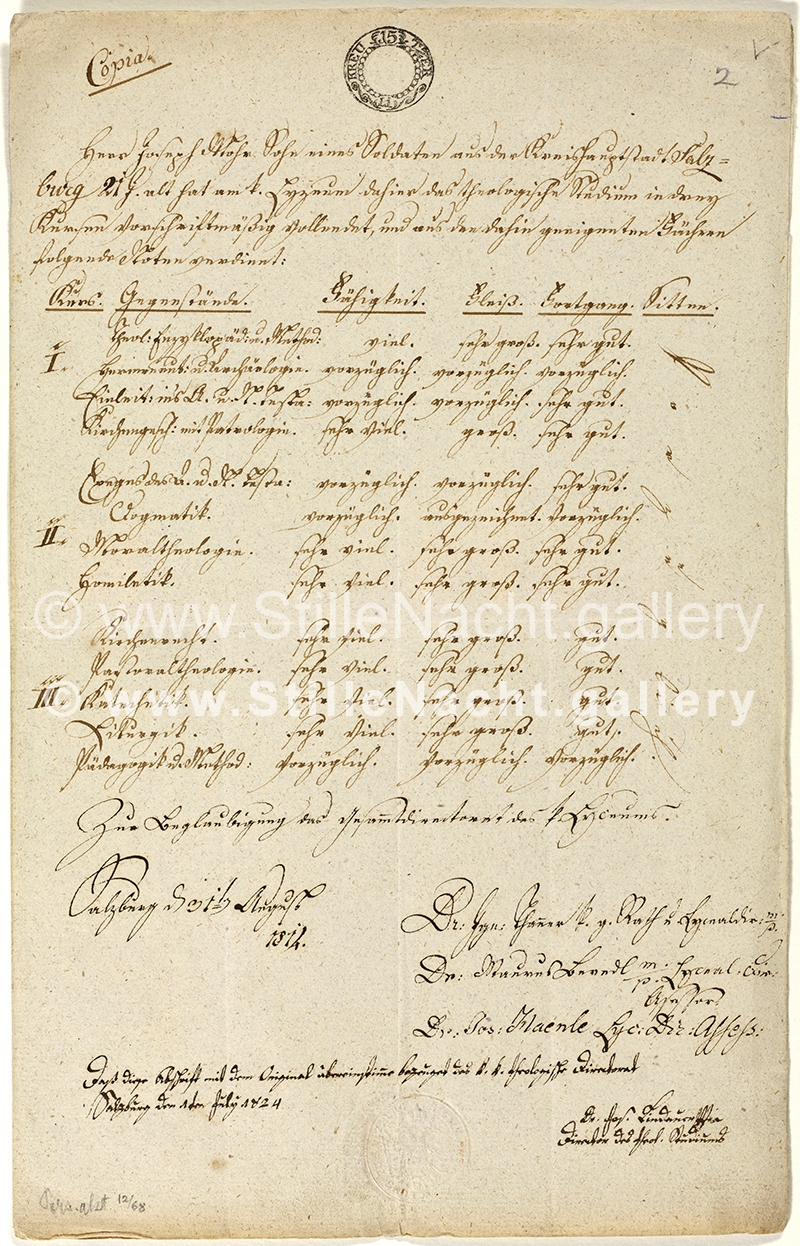 Copia.
15 KREUTZER
2
Herr Joseph Mohr Sohn eines Soldaten aus der Kreishauptstadt Salz=
burg 21 J. alt hat am k. Lyzeum dahier das theologische Studium in drey
Kursen vorschriftmäßig vollendet, und aus den dahin geeigneten Fächern
folgende Noten verdient:
Kurs. Gegenstände. Fähigkeit. Fleiß. Fortgang. Sitten.
Theol: Enzyklopäd: u. Method: viel. sehr groß. sehr gut.
I. Hermeneut: u. Archäologie. vorzüglich. vorzüglich. vorzüglich.
Einleit: ins A. u. N. Testa: vorzüglich. vorzüglich. sehr gut.
Kirchengesch: mit Patrologie. sehr viel. groß. sehr gut.
Exeges des A. u. N. Testa: vorzüglich. vorzüglich. sehr gut.
Dogmatik. vorzüglich. ausgezeichnet. vorzüglich.
II. Moraltheologie. sehr viel. sehr groß. sehr gut.
Homiletik. sehr viel. sehr groß. sehr gut.
© www.StilleNacht.gallery
Kirchenrecht. sehr viel. sehr groß. gut.
Pastoraltheologie. sehr viel. sehr groß. gut.
III. Katechetik. sehr viel. sehr groß. gut.
© www.StilleNacht.gallery
Liturgik. sehr viel. sehr groß. gut.
Pädagogik u. Method: vorzüglich. vorzüglich. vorzüglich.
Zur Beglaubigung das Gesammtdirectorat des k. Lyceums.
Salzburg d 31t August
1814.
Dr: Ign: Thanner k. g. Rath u Lycealdir: m. p.
Dr: Maurus Berndl m. p. Lyceal. Dir:
Assessor.
Dr: Jos: Haenle Lyc: Dir: Assess:
Daß dige Abschrift mit dem Original übereinstimme bezeuget das k. k. theologische Directorat
Salzburg den 1ten July 1824
Dr. Jos. Lindauer
Director des theol. Studiums
Pers. akt 12/68